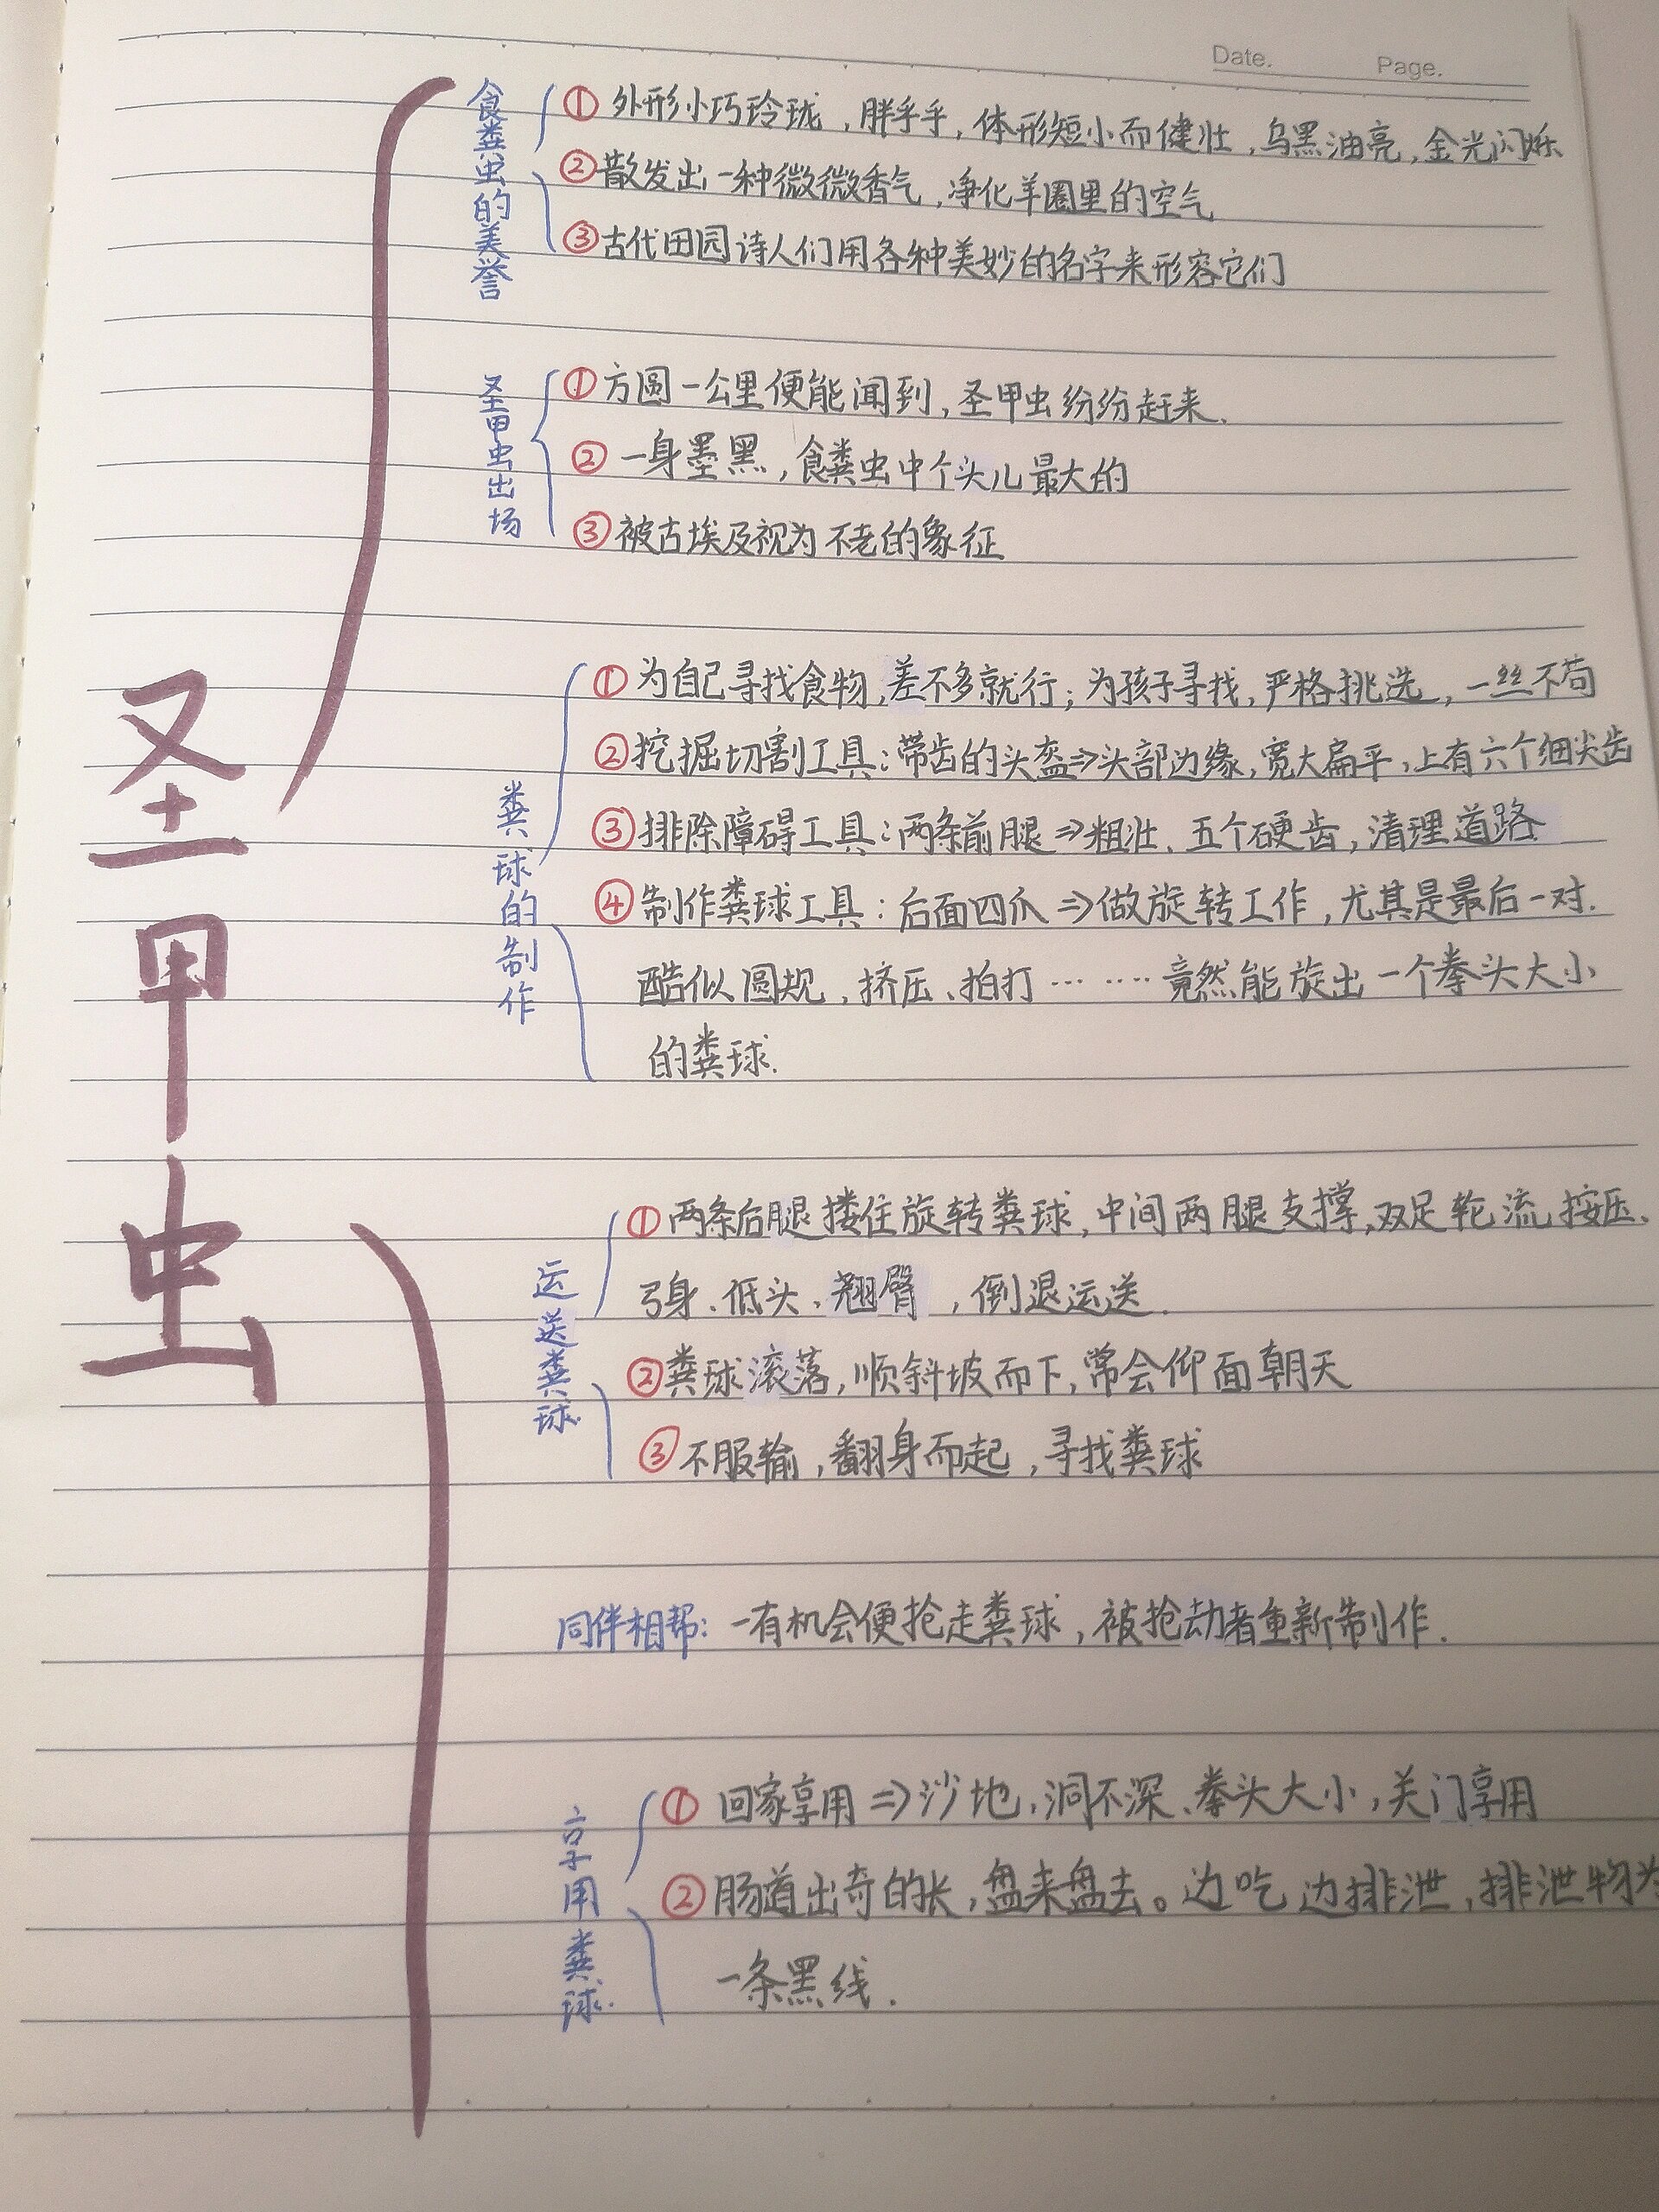 Date.
Page.
圣甲虫
食粪虫的美誉
①外形小巧玲珑,胖乎乎,体形短小而健壮,乌黑油亮,金光闪烁
②散发出一种微微香气,净化羊圈里的空气
③古代田园诗人们用各种美妙的名字来形容它们
圣甲虫出场
①方圆一公里便能闻到,圣甲虫纷纷赶来.
②一身墨黑,食粪虫中个头儿最大的
③被古埃及视为不老的象征
粪球的制作
①为自己寻找食物,差不多就行;为孩子寻找,严格挑选,一丝不苟
②挖掘切割工具:带齿的头盔⇒头部边缘,宽大扁平,上有六个细尖齿
③排除障碍工具:两条前腿⇒粗壮、五个硬齿,清理道路
④制作粪球工具:后面四爪⇒做旋转工作,尤其是最后一对.
酷似圆规,挤压、拍打……竟然能旋出一个拳头大小
的粪球.
运送粪球
①两条后腿搂住旋转粪球,中间两腿支撑,双足轮流按压、
弓身、低头、翘臀,倒退运送.
②粪球滚落,顺斜坡而下,常会仰面朝天
③不服输,翻身而起,寻找粪球
同伴相帮:一有机会便抢走粪球,被抢劫者重新制作.
享用粪球.
①回家享用⇒沙地,洞不深、拳头大小,关门享用
②肠道出奇的长,盘来盘去。边吃边排泄,排泄物为
一条黑线.